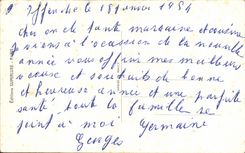 le 1 janvier 1954
cher oncle tante marraine et cousine
je viens à l'occasion de la nouvelle
année vous offrir mes meilleurs
voeux et souhaits de bonne
et heureuse année et une parfaite
santé tout la famille se
joint à moi
Georges Germaine